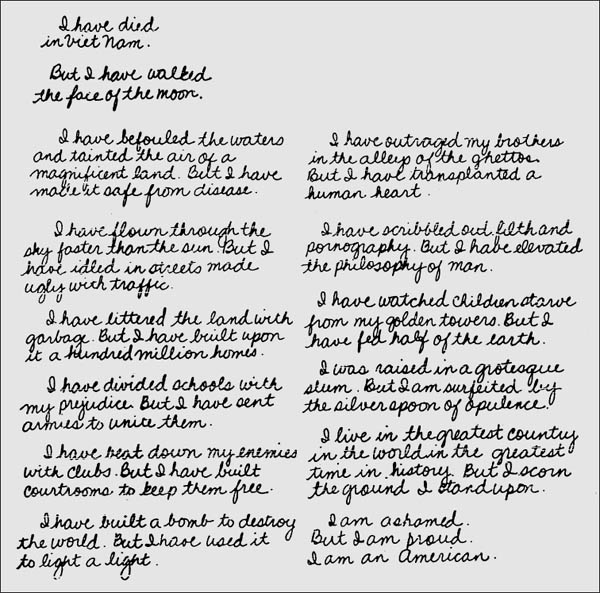 I have died
in Viet Nam.
But I have walked
the face of the moon.
I have befouled the waters
and tainted the air of a
magnificent land. But I have
made it safe from disease.
I have flown through the
sky faster than the sun. But I
have idled in streets made
ugly with traffic.
I have littered the land with
garbage. But I have built upon
it a hundred million homes.
I have divided schools with
my prejudice. But I have sent
armies to unite them.
I have beat down my enemies
with clubs. But I have built
courtrooms to keep them free.
I have built a bomb to destroy
the world. But I have used it
to light a light.
I have outraged my brothers
in the alleys of the ghettos.
But I have transplanted a
human heart.
I have scribbled out filth and
pornography. But I have elevated
the philosophy of man.
I have watched children starve
from my golden towers. But I
have fed half of the earth.
I was raised in a grotesque
slum. But I am surfeited by
the silver spoon of opulence.
I live in the greatest country
in the world in the greatest
time in history. But I scorn
the ground I stand upon.
I am ashamed.
But I am proud.
I am an American.